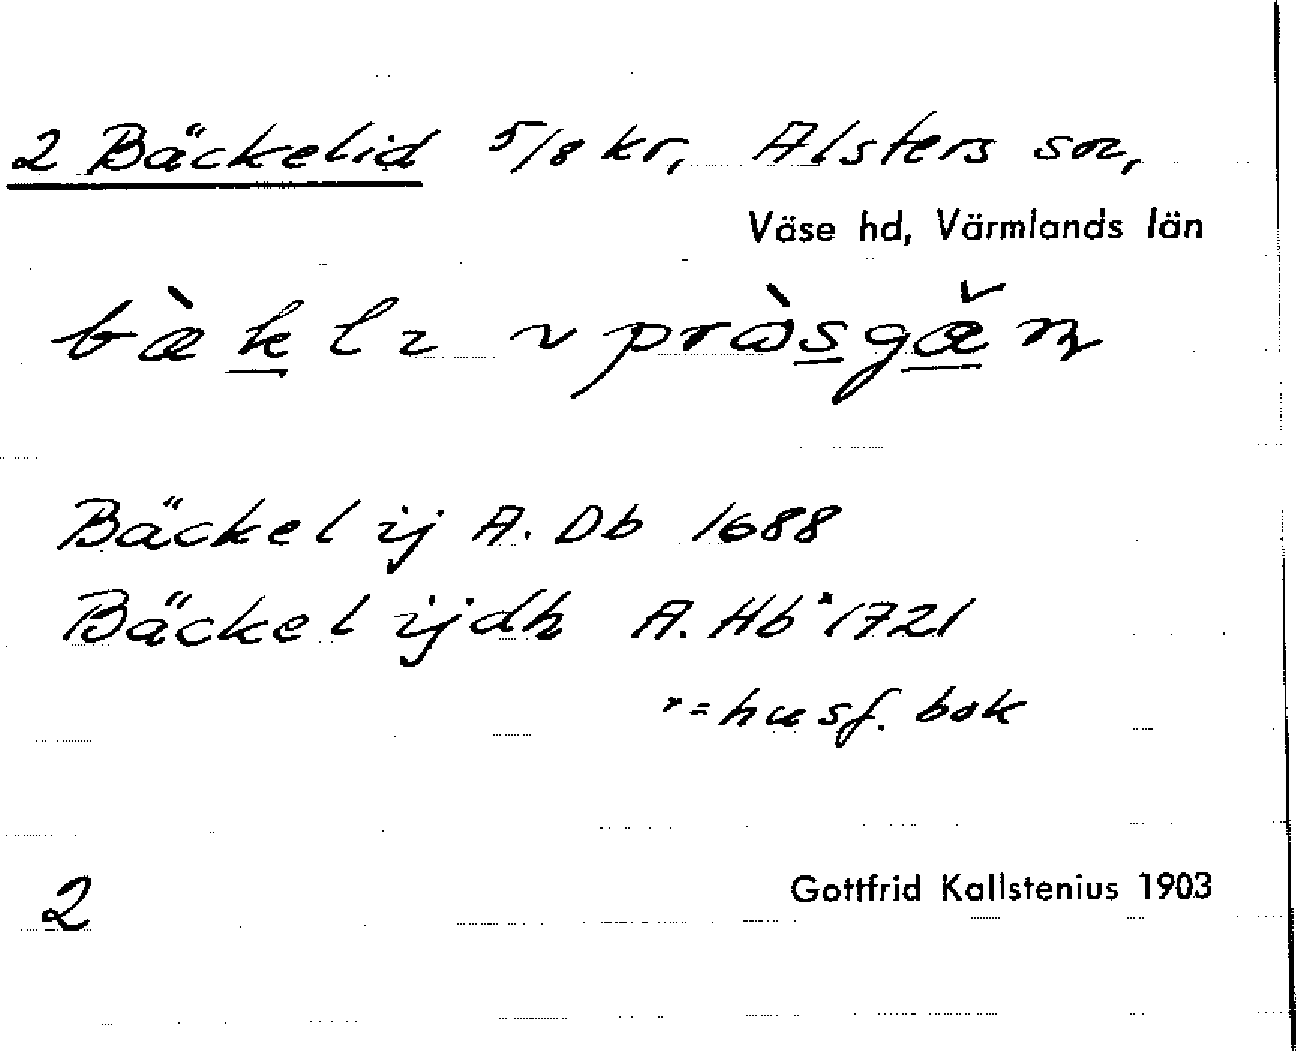 2 Bäckelid 5/8 kr, Alsters sn,
Väse hd, Värmlands län
bæ̀k̲lı ɿ prɷ̀s̲gæ̲̌n
Bäckelij A. Db 1688
Bäckelijdh A. Hb* 1721
* = husf. bok
Gottfrid Kallstenius 1903
2